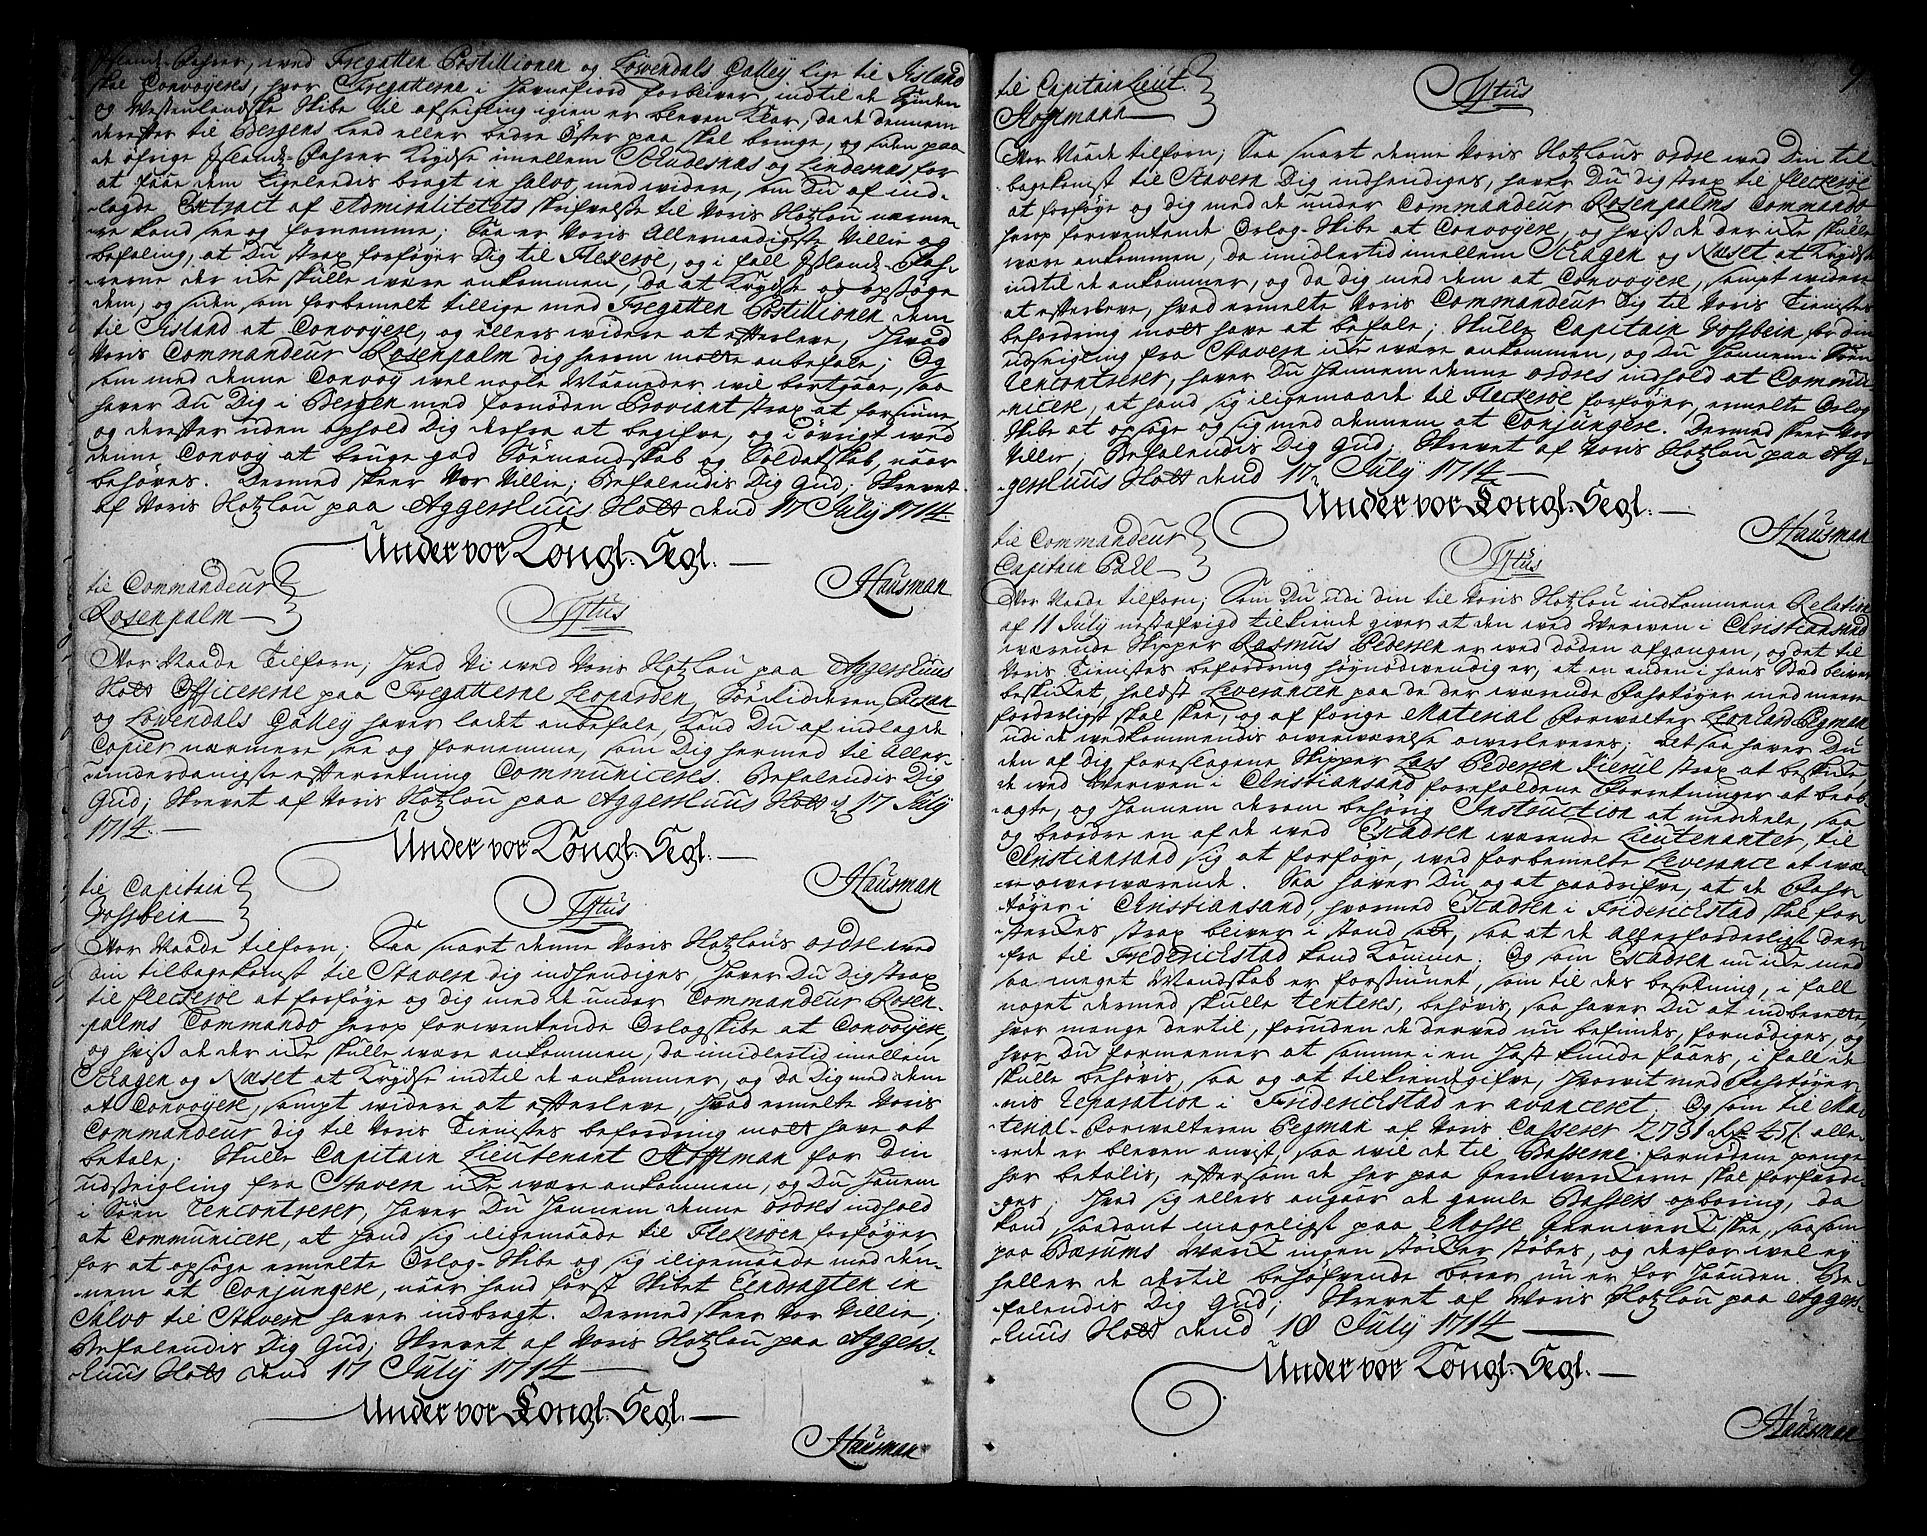 Fahrer, med Fregatten Postillionen og Löwendals Galley lige til Jisland
skal Convoyeres, hvor Fregatterne i Havnefiord forbliver, indtil de
og Westenlandske Skibe til afseigling igien er bleven klar, da de dennem
derefter til Bergens leed eller bedre Öster paa skal bringe, og siden paa
de öfrige Jslands-Fahrer krydse imellem Skudesnæs og Lindesnæs for
at faae dem ligeledis bragt in salvo, med widere, som Du af ind-
-lagde Extract af Admiralitetets skrifvelse til Voris Slotzlov nærme-
re kand see og fornemme; Saa er Voris Allernaadigste Villie og
befaling, at Du strax forföyer Dig til Flekeröe, og i fall Jslands-Fah-
rerne der icke skulle være ankommen, da at krydse og opsöge
dem, og siden som forbemelt tillige med Fregatten Postillionen dem
til Jisland at Convoyere, og ellers widere at efterleve, hvad
Voris Commandeur Rosenpalm dig herom motte anbefale; Og
som med denne Convoy wel nogle Maaneder wil bortgaae, saa
haver Du Dig i Bergen med fornöden Proviant strax at forsiune,
og derefter uden ophold Dig derfra at begifve, og i övrigt ved
denne Convoy at bruge god Sömandskab og Soldatskab, naar
behöves. Dermed skeer Vor Villie; Befalendis Dig Gud; Skrevet
af Voris Slotzlov paa Aggershuus Slott dend 17 July 1714
Under vor Kongl. Segl.
Hausman
til Commandeur
Rosenpalm
Tytus
Vor Naade Tilforn; Hvad Vi ved Voris Slotzlov paa Aggershuus
Slott Officererne paa Fregatterne Leoparden, Söeridderen, Pecan
og Löwendals Galley haver ladet anbefale, kand Du af indlagde
Copier nærmere see og fornemme, som Dig hermed til Aller-
underdanigste efterretning Communiceres. Befalendis Dig
Gud; Skrevet af Voris Slotzlov paa Aggershuus Slott d. 17 July
1714.
Under vor Kongl. Segl.
Hausman
til Capitain
Vosbein
Tytus
Vor Naade tilforn; Saa snart denne Voris Slotzlovs ordre ved
din tilbagekomst til Stavern dig indhendiges, haver Du Dig strax
til Fleckeröe at forföye og dig med de under Commandeur Rosen-
palms Commando herop forwentende Orlogskibe at Convoyere,
og hvis de der icke skulle være ankommen, da imidlertid imellem
Skagen og Næset at krydse indtil de ankommer, og da Dig med dem
at Convoyere, sampt widere at efterleve, hvad ermelte Voris
Commandeur dig til Voris Tienistes befordring motte have at
befale; Skulle Capitain Lieutenant Stoffman for Din
udseigling fra Stavern icke være ankommen, og Du hannem
i Söen rencontrerer, haver Du hannem denne ordres indhold
at Communicere, at hand sig iligemaade til Flekeröen forföyer
for at opsöge ermelte Orlog-Skibe og sig iligemaade med den-
-nem at Conjungere, naar hand först Skibet Eendragten in
Salvo til Stavern haver indbragt. Dermed skeer Vor Villie;
Befalendis Dig Gud; Skrevet af Voris Slotzlov paa Aggers-
-huus Slott dend 17 July 1714
Under vor Kongl. Segl.
Hausman
til Capitain Lieut.
Stoffmann
Tytus
Vor Naade tilforn; Saa snart denne Voris Slotzlovs ordre ved Din til-
bagekomst til Stavern Dig indhendiges, haver Du dig strax til Fleckeröe
at forföye og dig med de under Commandeur Rosenpalms Commando
herop forwentende Orlog-Skibe at Convoyere, og hvis de der icke skulle
være ankommen, da imidlertid imellem Skagen og Næset at krydse
indtil de ankommer, og da dig med dem at Convoyere, sampt widere
at efterleve, hvad ermelte Voris Commandeur Dig til Voris Tienistes
befordring motte have at befale; Skulle Capitain Vosbein for din
udseigling fra Stavern icke være ankommen, og Du hannem i Söen
rencontrerer, haver Du hannem denne ordres indhold at Commu-
-nicere, at hand sig iligemaade til Fleckeröe forföyer, ermelte Orlog-
Skibe at opsöge og sig med dennem at Conjungere. Dermed skeer Vor
Villie; Befalendis Dig Gud; Skrevet af Voris Slotzlov paa Ag-
-gershuus Slott dend 17 July 1714
Under vor Kongl. Segl.
Hausman
til Commandeur
Capitain Pall
Tytus
Vor Naade tilforn; Som Du udi din til Voris Slotzlov indkommene Relation
af 11 July nestafvigt tilkiende giver at den ved Verven i Christiansand
værende Skipper Rasmus Pedersen er ved döden afgangen, og det til
Voris Tienistes befordring höynödwendig er, at en anden i hans Stæd bliver
beskicket, helst Leverancen paa de der værende Fartöyer med meere
forderligst skal skee, og af forige Material Forwalter Leonard Pegman
udi de vedkommendis overværelse overleveres; Det saa haver Du
den af Dig foreslagene Skipper Lars Pedersen strax at beskicke
de ved Verven i Christiansand forefaldene Forretninger at beob-
-agte, og hannem derom behörig Instruction at meddeele, saa
og beordre en af de ved Escadren værende Lieutenanter, til
Christiansand sig at forföye, ved forbemelte Leverance at væ-
-re overværende. Saa haver Du og at paadrifve, at de Fahr-
töyer i Christiansand, hvormed Escadren i Friderichstad skal for-
-sterckes strax bliver i stand satt, saa at de allerforderligst der-
-fra til Frederichstad kand komme; Og som Escadren nu icke med
saa meget Mandskab er forsiunet, som til des besetning, i fall
noget dermed skulle tenteres, behövis, saa haver Du at indberette,
hvor mange dertil, foruden de derved nu befindes, fornödiges, og
hvor Du formeener at samme i en hast kunde faaes, i fall de
skulle behövis, saa og at tilkiendegifve, hvorvit med Fartöyer-
-nis reparation i Friderichstad er avanceret; Og som til Ma-
terial-Forwalteren Pegman af Voris Casserer 2731 Rdr alle-
rede er bleven anvist, saa wil de til Basserne fornödne penge
her betalis, eftersom de her paa Jernwerckerne skal forfærdi-
ges; Hvad sig ellers angaar de gamle Bassers opboring, da
kand saadant mageligst paa Mosse Jernwerck skee, saasom
paa Bærums Werck ingen stöcker stöbes, og derfor wel ey
heller de dertil behöfvende borer nu er for haanden. Be-
-falendis Dig Gud; Skrevet af Voris Slotzlov paa Aggers-
-huus Slott dend 18 July 1714
Under vor Kongl. Segl.
Hausman